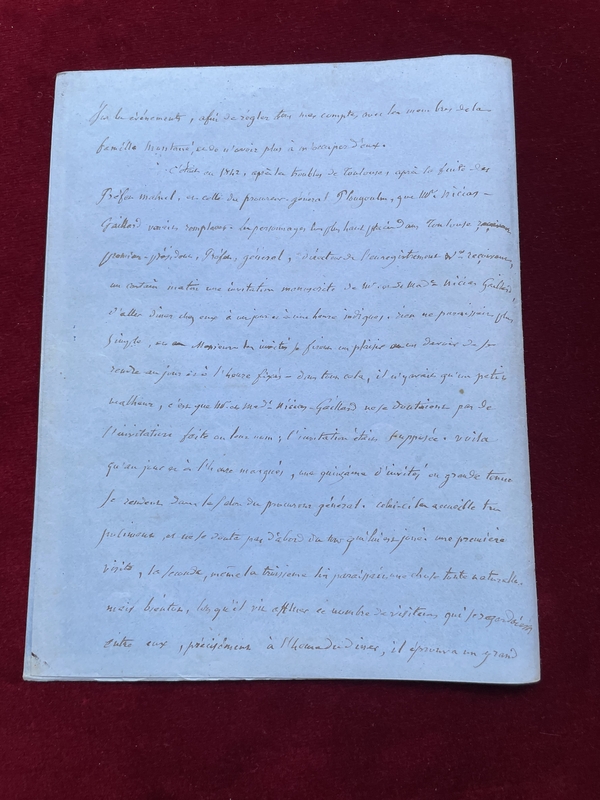 Sur les événements, afin de régler tous mes comptes avec les membres de la
famille Montané, et de n'avoir plus à m'occuper d'eux.
C'était en 1842, après les troubles de Toulouse, après la fuite des
Préfet Mahul, et celle du procureur-général Plougoulm, que Mr. Nicias-
Gaillard venait remplacer. Les personnages les plus haut placés dans Toulouse,
premier-président, Préfet, général, directeur de l'enregistrement &a reçurent,
un certain matin une invitation manuscrite de Mr et de Made Nicias Gaillard
d'aller diner chez eux à un jour et à une heure indiqués. rien ne paraissait plus
simple, et Messieurs les invités se firent un plaisir et un devoir de se
rendre au jour et à l'heure fixés - dans tout cela, il n'y avait qu'un petit
malheur, c'est que Mr et Made Nicias-Gaillard ne se doutaient pas de
l'invitation faite en leur nom; l'invitation était supposée. voila
qu'au jour et à l'heure marqués, une quinzaine d'invités en grande tenue
se rendent dans le salon du procureur général. celui-ci les accueille très
poliment, et ne se doute pas d'abord du tour qu'on lui jouait. une première
visite, la seconde, même la troisième lui paraissaient une chose toute naturelle,
mais bientôt, lorsqu'il vit affluer ce nombre de visiteurs qui se regardaient
entre eux, précisément à l'heure du diner, il éprouva un grand